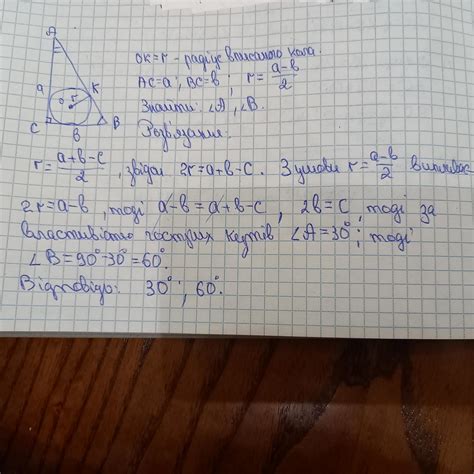 A
a
O
r
K
C
b
B
OK=r - радіус вписаного кола.
AC=a; BC=b; r=a-b/2
Знайти: ∠A, ∠B.
Розв'язання.
r=a+b-c/2, звідси 2r=a+b-c. З умови r=a-b/2 випливає
2r=a-b, тоді a-b=a+b-c, 2b=c, тоді за
властивістю гострих кутів ∠A=30°; тоді
∠B=90°-30°=60°.
Відповідь: 30°; 60°.